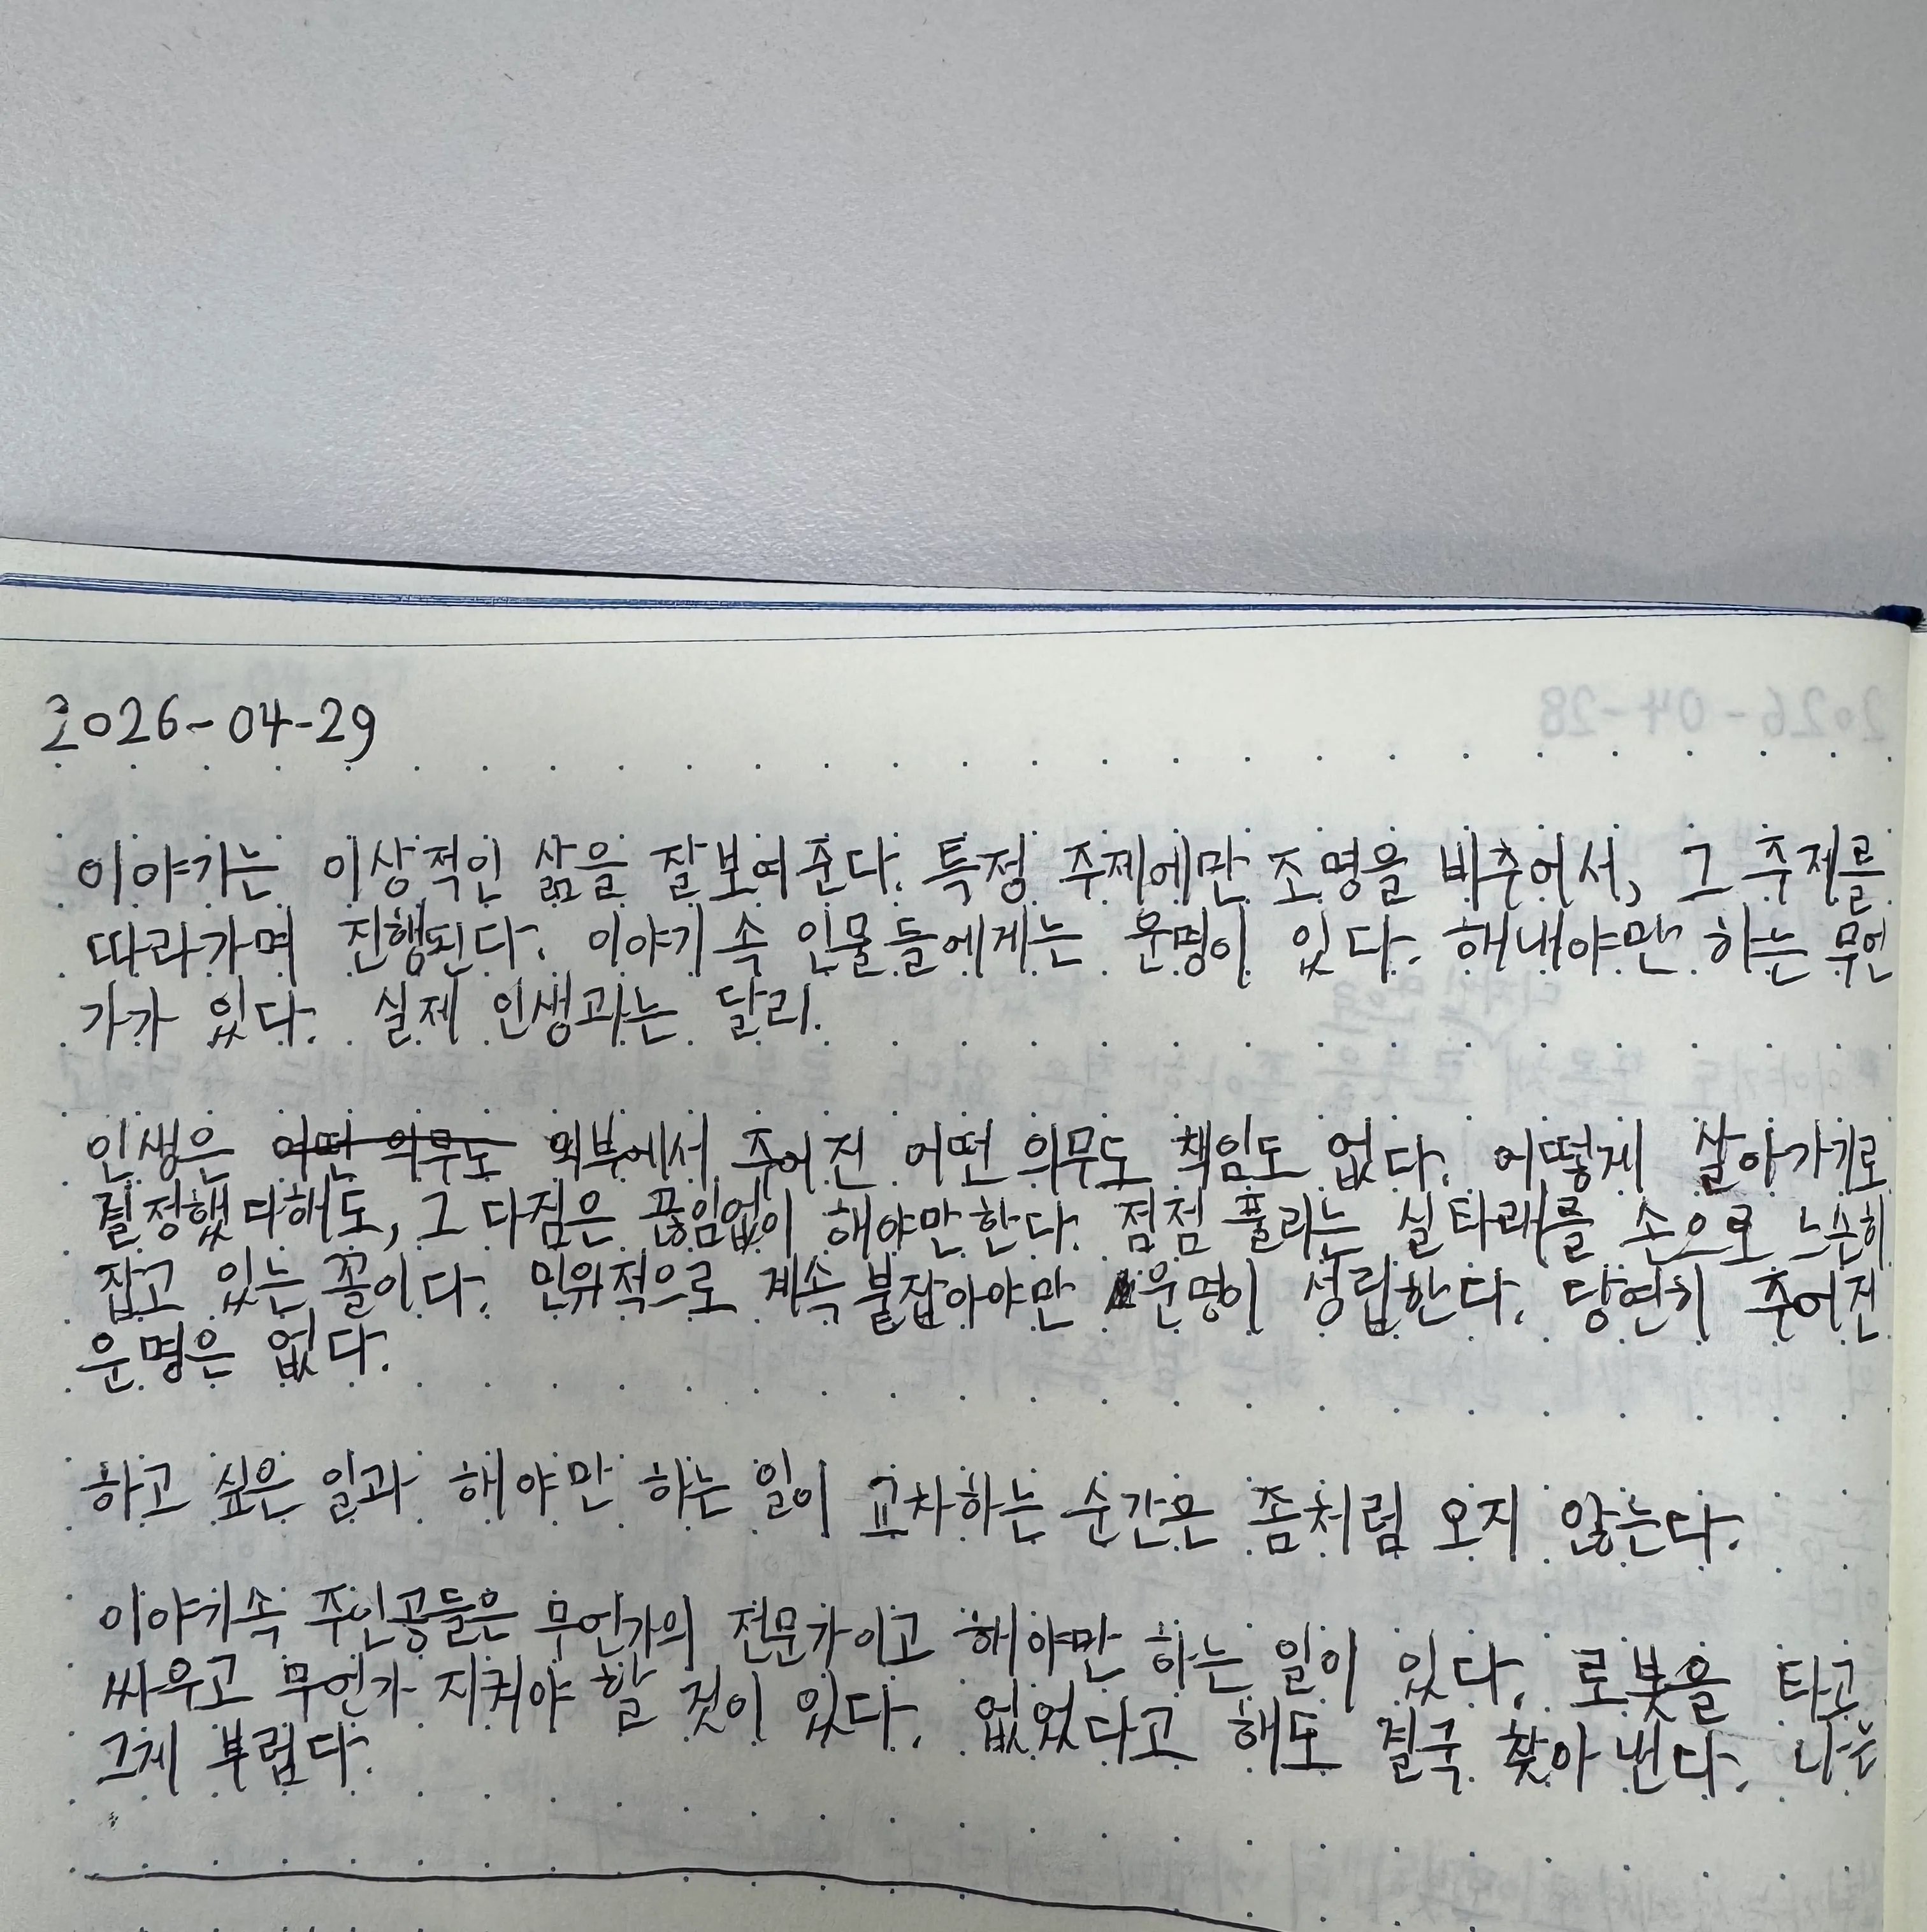 2026-04-29
이야기는 이상적인 삶을 잘보여준다. 특정 주제에만 조명을 비추어서, 그 주제를
따라가며 진행된다. 이야기 속 인물들에게는 운명이 있다. 해내야만 하는 무언
가가 있다. 실제 인생과는 달리.
인생은 어떤 의무도 외부에서 주어진 어떤 의무도 책임도 없다. 어떻게 살아가기로
결정했다해도, 그 다짐은 끊임없이 해야만한다. 점점 풀리는 실타래를 손으로 느슨히
잡고 있는 꼴이다. 인위적으로 계속 붙잡아야만 운명이 성립한다. 당연히 주어진
운명은 없다.
하고 싶은 일과 해야만 하는 일이 교차하는 순간은 좀처럼 오지 않는다.
이야기속 주인공들은 무언가의 전문가이고 해야만 하는 일이 있다. 로봇을 타고
싸우고 무언가 지켜야 할 것이 있다. 없었다고 해도 결국 찾아낸다. 나는
그게 부럽다.